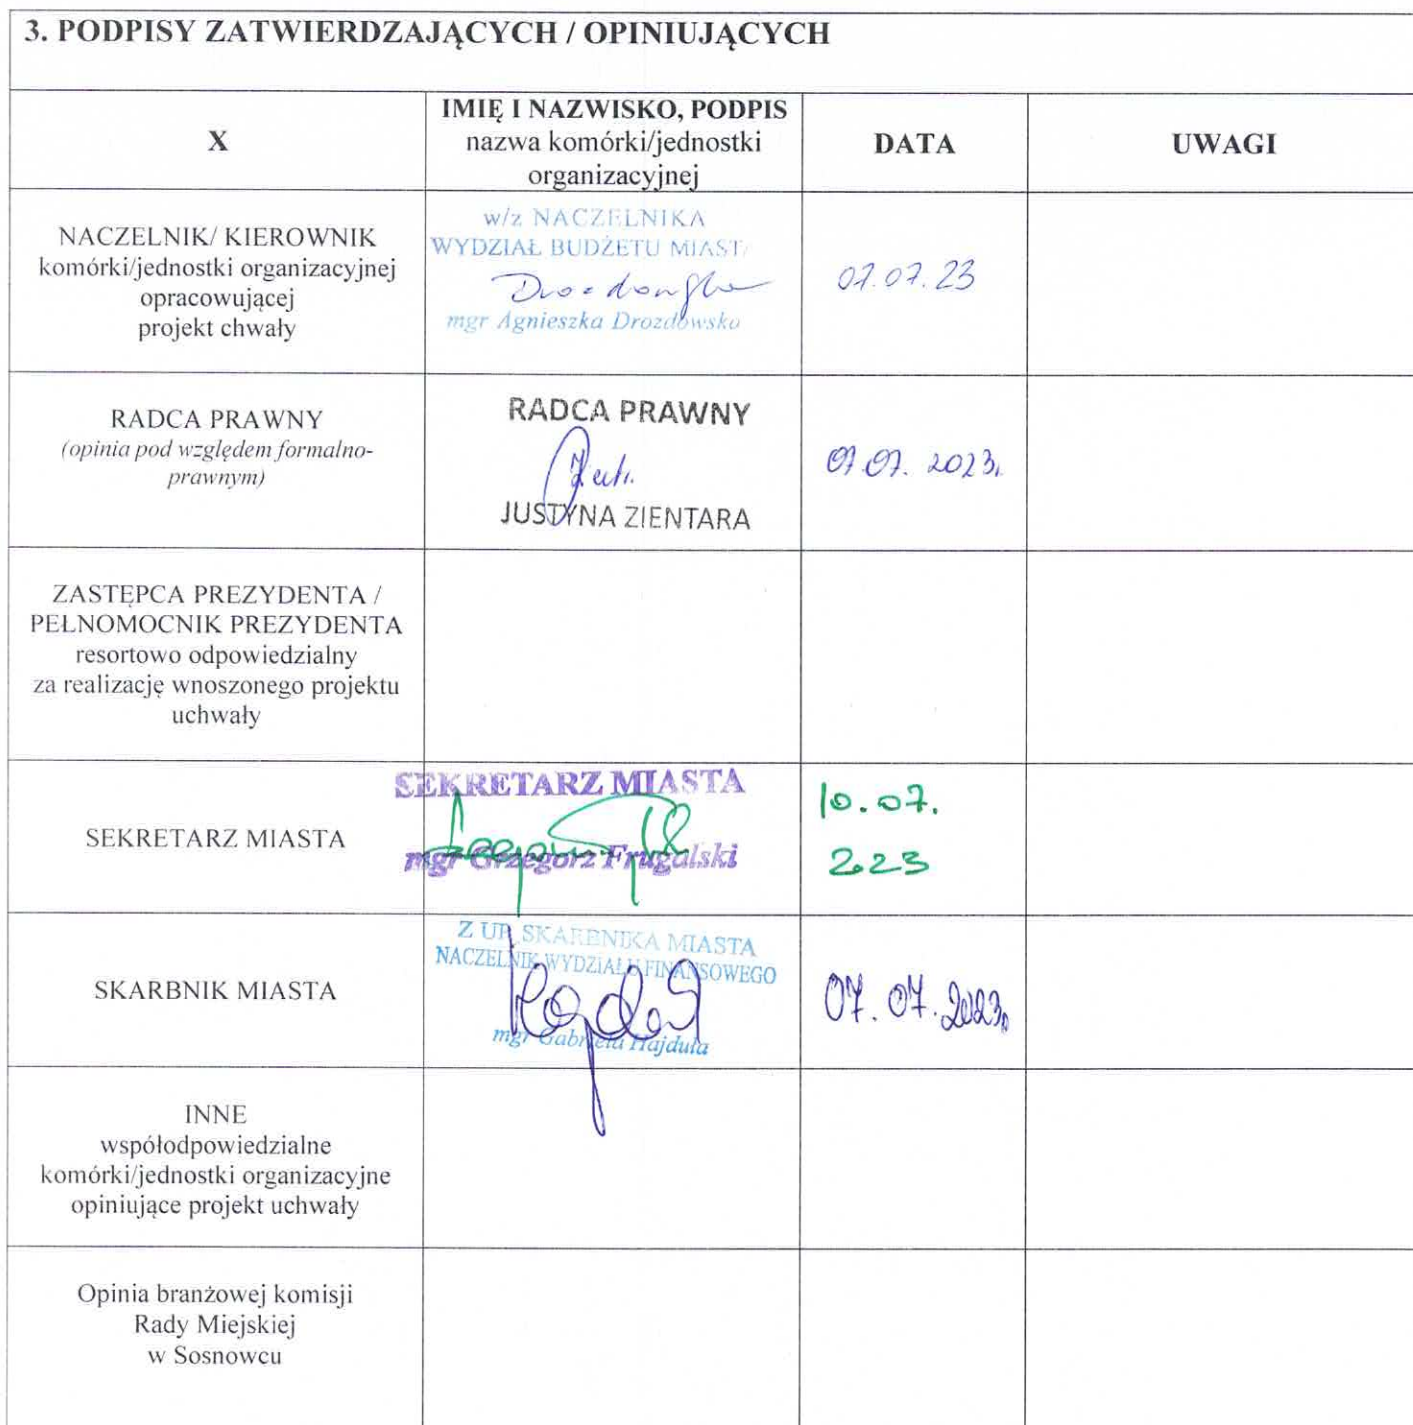 3. PODPISY ZATWIERDZAJĄCYCH / OPINIUJĄCYCH
X
IMIĘ I NAZWISKO, PODPIS
nazwa komórki/jednostki
organizacyjnej
DATA
UWAGI
NACZELNIK/ KIEROWNIK
komórki/jednostki organizacyjnej
opracowującej
projekt chwały
w/z NACZELNIKA
WYDZIAŁ BUDŻETU MIASTA
mgr Agnieszka Drozdowska
07.07.23
RADCA PRAWNY
(opinia pod względem formalno-
prawnym)
RADCA PRAWNY
JUSTYNA ZIENTARA
07.07. 2023r.
ZASTĘPCA PREZYDENTA /
PEŁNOMOCNIK PREZYDENTA
resortowo odpowiedzialny
za realizację wnoszonego projektu
uchwały
SEKRETARZ MIASTA
SEKRETARZ MIASTA
mgr Grzegorz Frugalski
10.07.
2023
SKARBNIK MIASTA
Z UP. SKARBNIKA MIASTA
NACZELNIK WYDZIAŁU FINANSOWEGO
mgr Gabriela Hajduła
07.07.2023r.
INNE
współodpowiedzialne
komórki/jednostki organizacyjne
opiniujące projekt uchwały
Opinia branżowej komisji
Rady Miejskiej
w Sosnowcu